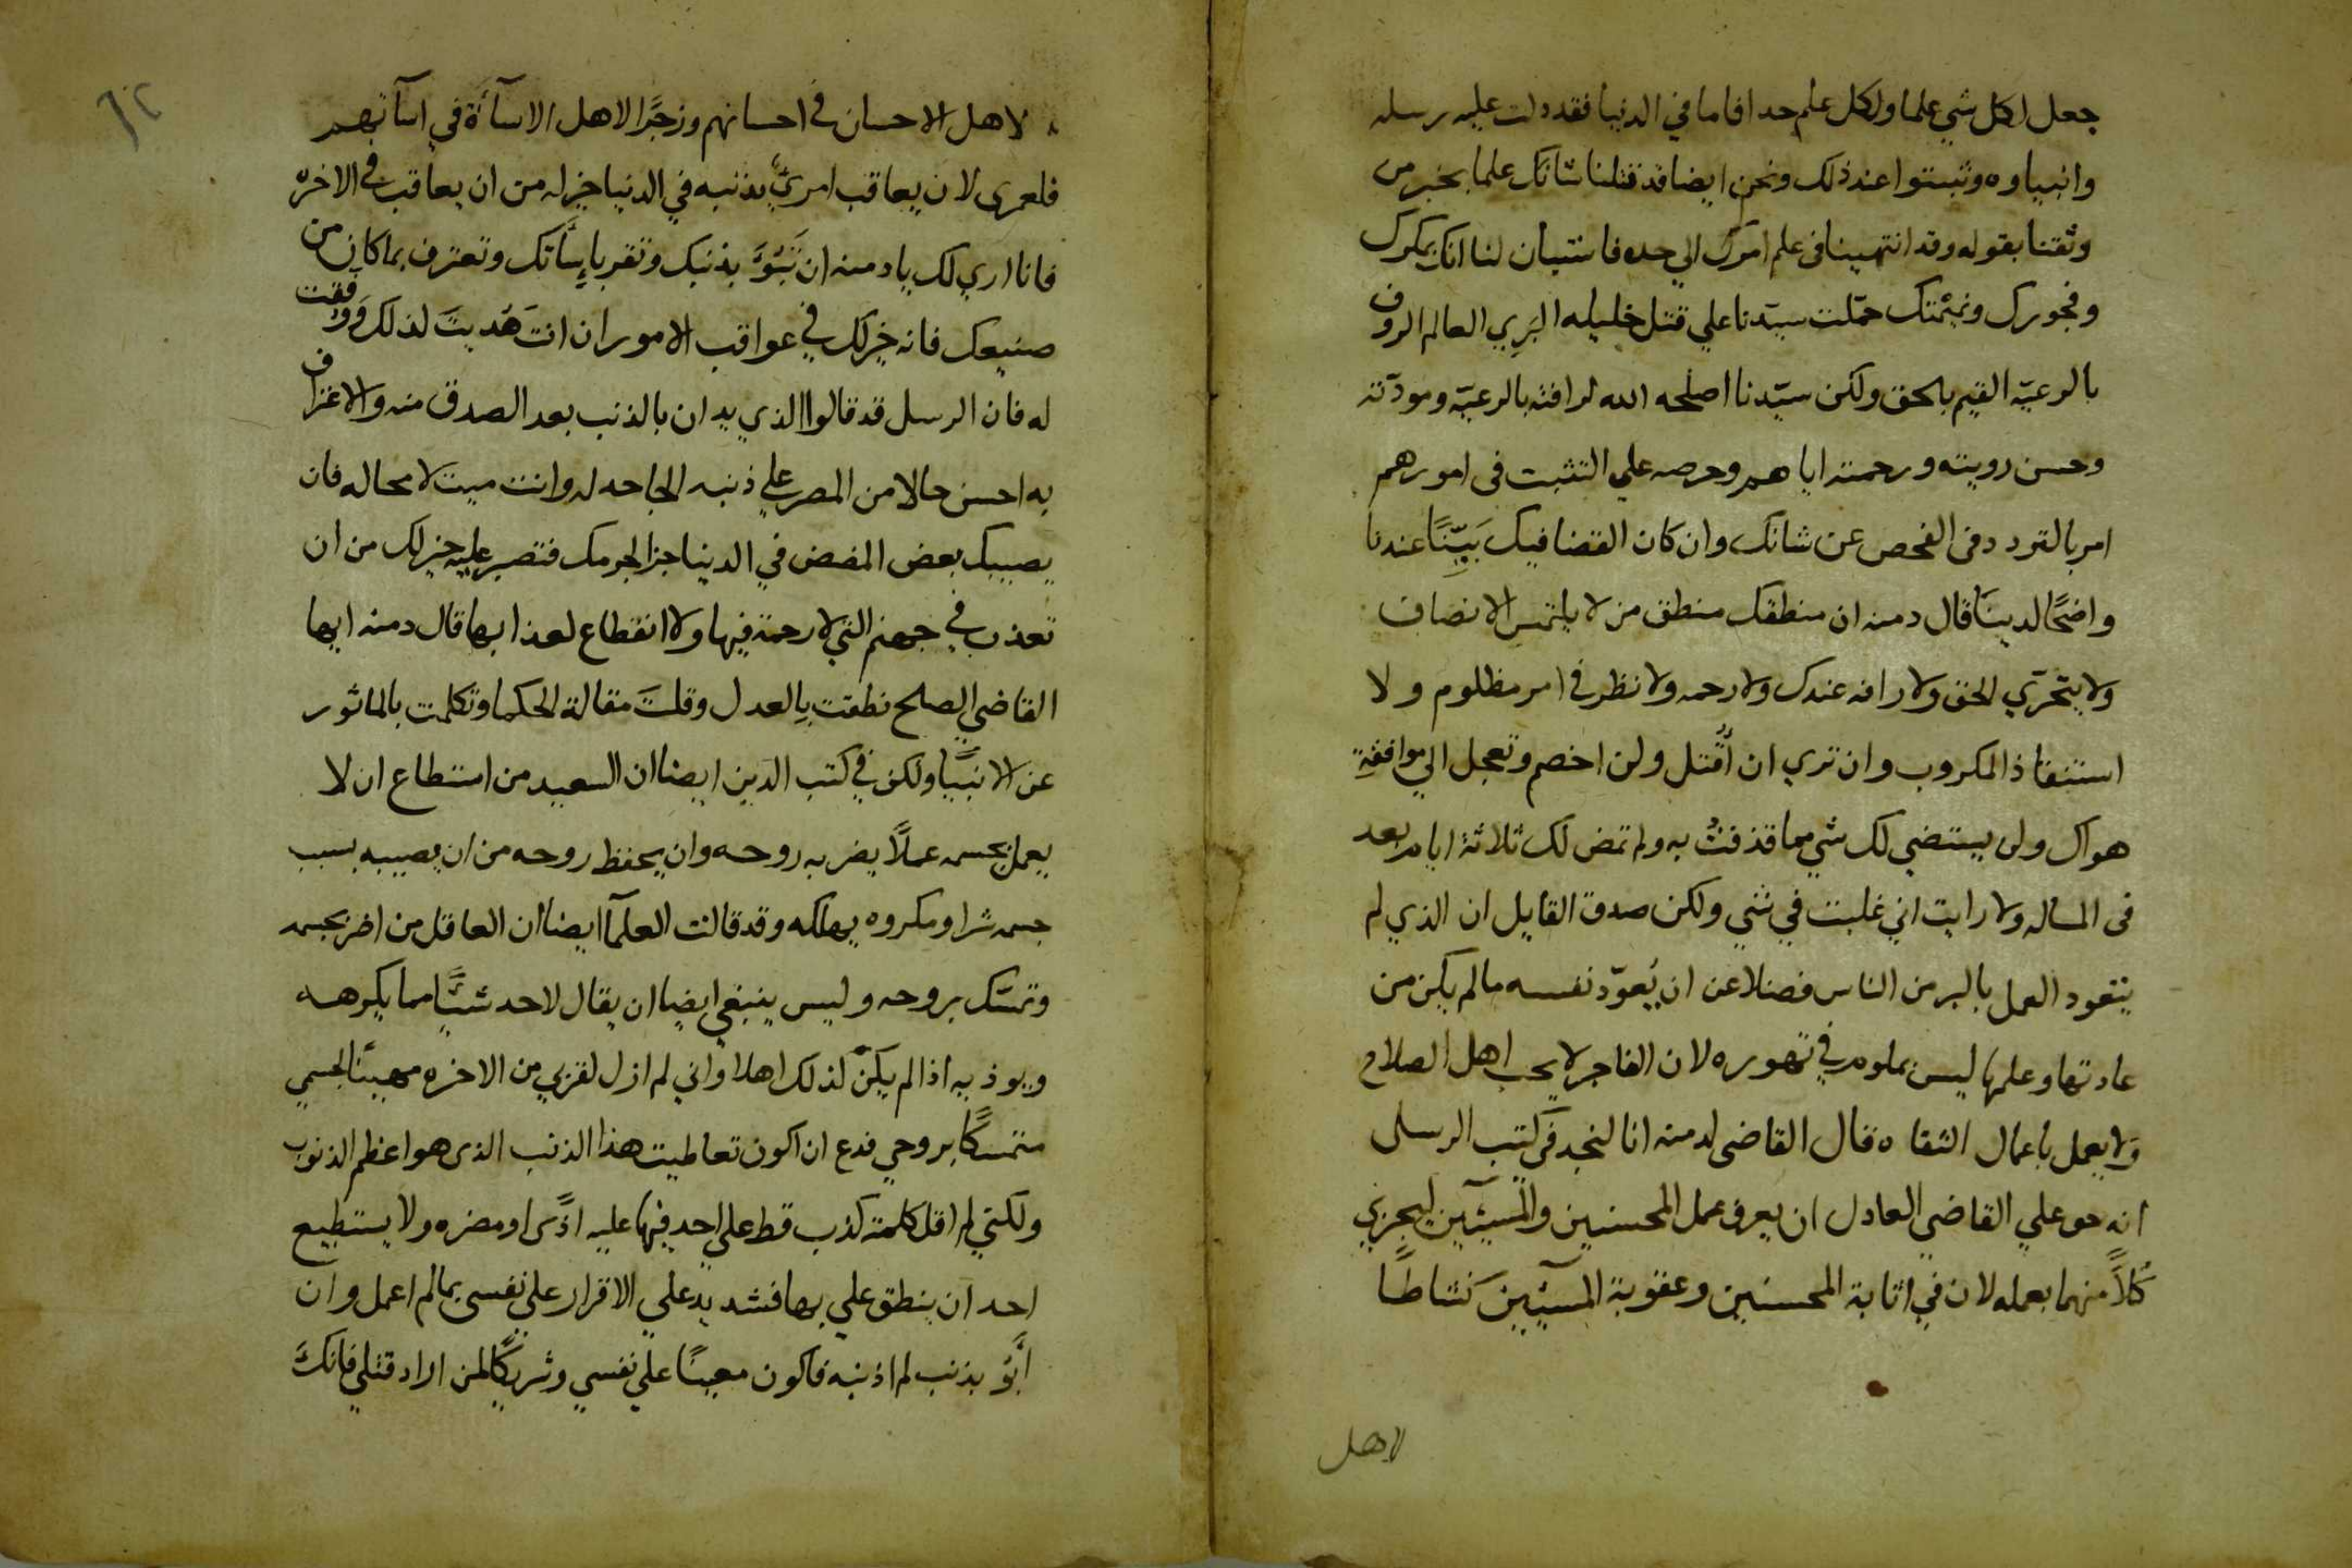 جعل لكل شي علما ولكل علم حدا فاما في الدنيا فقد دلت عليه رسله
وانبياوه وثبتوا عند ذلك ونحن ايضا قد قتلنا شانك علما بخبر من
وثقنا بقوله وقد انتهينا في علم امرك الي حده فاستبان لنا انك بمكرك
وفجورك ونميمتك حمّلت سيّدنا علي قتل خليله البري العالم الروف
بالرعيّه القيم بالحق ولكن سيّدنا اصلحه الله لرافته بالرعيّه ومودّته
وحسن رويته ورحمته اياهم وحرصه علي التثبت في امورهم
امر بالتردد في الفحص عن شانك وان كان القضا فيك بَيّنًا عندنا
واضحًا لدينَا قال دمنه ان منطقك منطق من لا يلتمس الانصاف
ولا يتحرّي الحق ولا رافه عندك ولا رحمه ولا نظر في امر مظلوم ولا
استنقاذ المكروب وان تري ان أُقتل ولن اخصم وتعجل الي موافقةِ
هواك ولن يستضي لك شي مما قذفتُ به ولم تمض لك ثلاثة ايام بعد
في المساله ولا رايت اني غلبت في شي ولكن صدق القايل ان الذي لم
يتعود العمل بالبر من الناس فضلا عن ان يُعوّد نفسه ما لم يكن من
عادتها وعلمها ليس بملوم في تهوره لان الفاجر لا يحب اهل الصلاح
ولا يعمل باعمال الثقاه قال القاضي لدمنه انا لنجد في كتب الرسل
انه حق علي القاضي العادل ان يعرف عمل المحسنين والمسيئين ليجزي
كُلاًّ منهما بعمله لان في اثابة المحسنين وعقوبة المسيئين نشاطًا
لاهل
٦٢
لاهل الاحسان في احسانهم وزجرًا لاهل الاسآءة في اسآتهم
فلعمري لان يعاقب امريٌ بذنبه في الدنيا خير له من ان يعاقب في الاخره
فانا اري لك يا دمنه ان تَبُوَّ بذنبك وتقر باِسَآتك وتعترف بما كان من
صنيعك فانه خير لك في عواقب الامور ان انت هُديتَ لذلك ووُفقت
له فان الرسل قد قالوا الذي يدان بالذنب بعد الصدق منه والاعتراف
به احسن حالا من المصر علي ذنبه الجاحد له وانت ميت لا محاله فان
يصيبك بعض المضض في الدنيا جزا لجرمك فتصبر عليه خير لك من ان
تعذب في جهنم التي لا رحمة فيها ولا انقطاع لعذابها قال دمنه ايها
القاضي الصلح نطقت بالعدل وقلتَ مقالة الحكما وتكلمت بالماثور
عن الانبيًا ولكن في كتب الدين ايضا ان السعيد من استطاع ان لا
يعمل بجسمه عملًا يضر به روحه وان يحفظ روحه من ان يصيبه بسبب
جسمه شر او مكروه يهلكه وقد قالت العلمآ ايضا ان العاقل من اضر بجسمه
وتمسّك بروحه وليس ينبغي ايضا ان يقال لاحد شيًّا مما يكرهه
ويوذيه اذا لم يكنّ لذلك اهلا واني لم ازل لقربي من الاخره مهينًا لجسمي
متمسكًا بروحي فدع ان اكون تعاطيت هذا الذنب الذي هو اعظم الذنوب
ولكني لم اقل كلمة كذب قط علي احد فيها عليه اذًي او مضره ولا يستطيع
احد ان ينطق علي بها فشد يد علي الاقرار علي نفسي بما لم اعمل وان
أَبُوَّ بذنب لم اذنبه فاكون معينًا علي نفسي وشريكًا لمن اراد قتلي فانكَّ